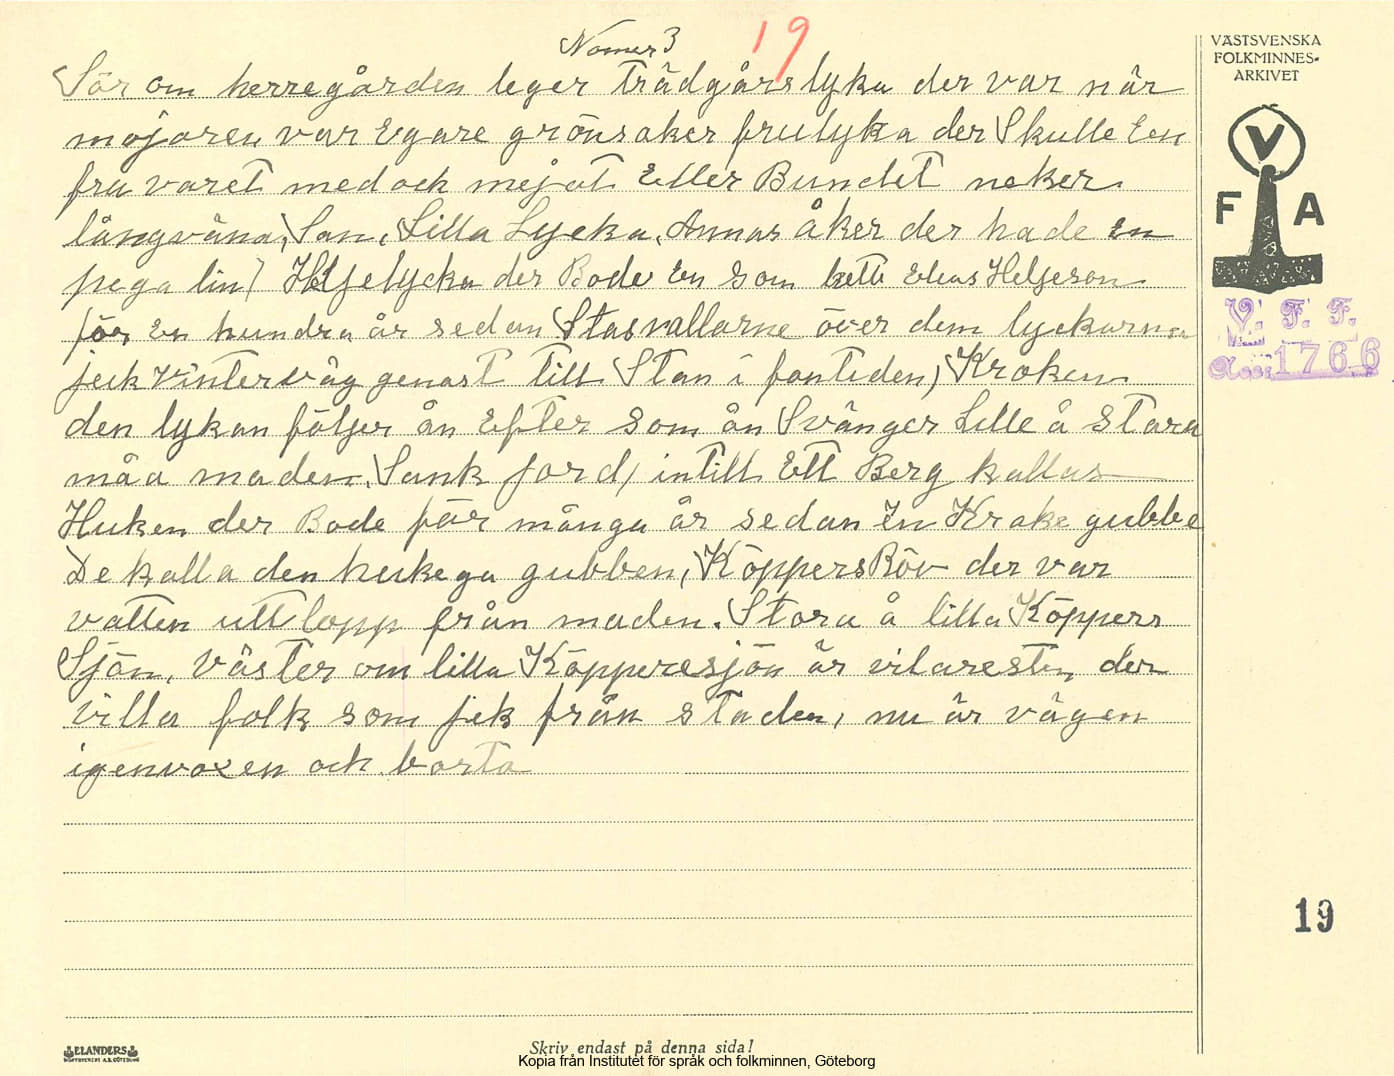 Nomer 3
19
Sör om herregården leger trädgårs lyka der var når
majoren var Egare grönsaker frulyka der Skulle En
fru varet med och mejat Eller Bundet neker
långvåna, San, Lilla Lycka, Annas åker der hade En
pega lin) Heljelycka der Bode En som hette Elias Heljeson
för En hundra år sedan Stasvallarne över dem lyckarna
jeck vintervåg genast till Stan i fontiden) Kroken
den lykan följer ån Efter som ån Svänger Lille å stora
måa maden. Sank jord, intill Ett Berg kallas
Huken der Bode för många år sedan En Krake gubbe
De kalla den hukega gubben, Köppers Röv der var
vatten utt lopp från maden. Stora å lilla Köppers
Sjön, Väster om lilla Köpperesjön är vilaresten der
villa folk som jek från staden, nu är vägen
igenvoxen och borta
VÄSTSVENSKA
FOLKMINNES-
ARKIVET
V
F A
V. F. F.
1766
19
ELANDERS
Skriv endast på denna sida!
Kopia från Institutet för språk och folkminnen, Göteborg